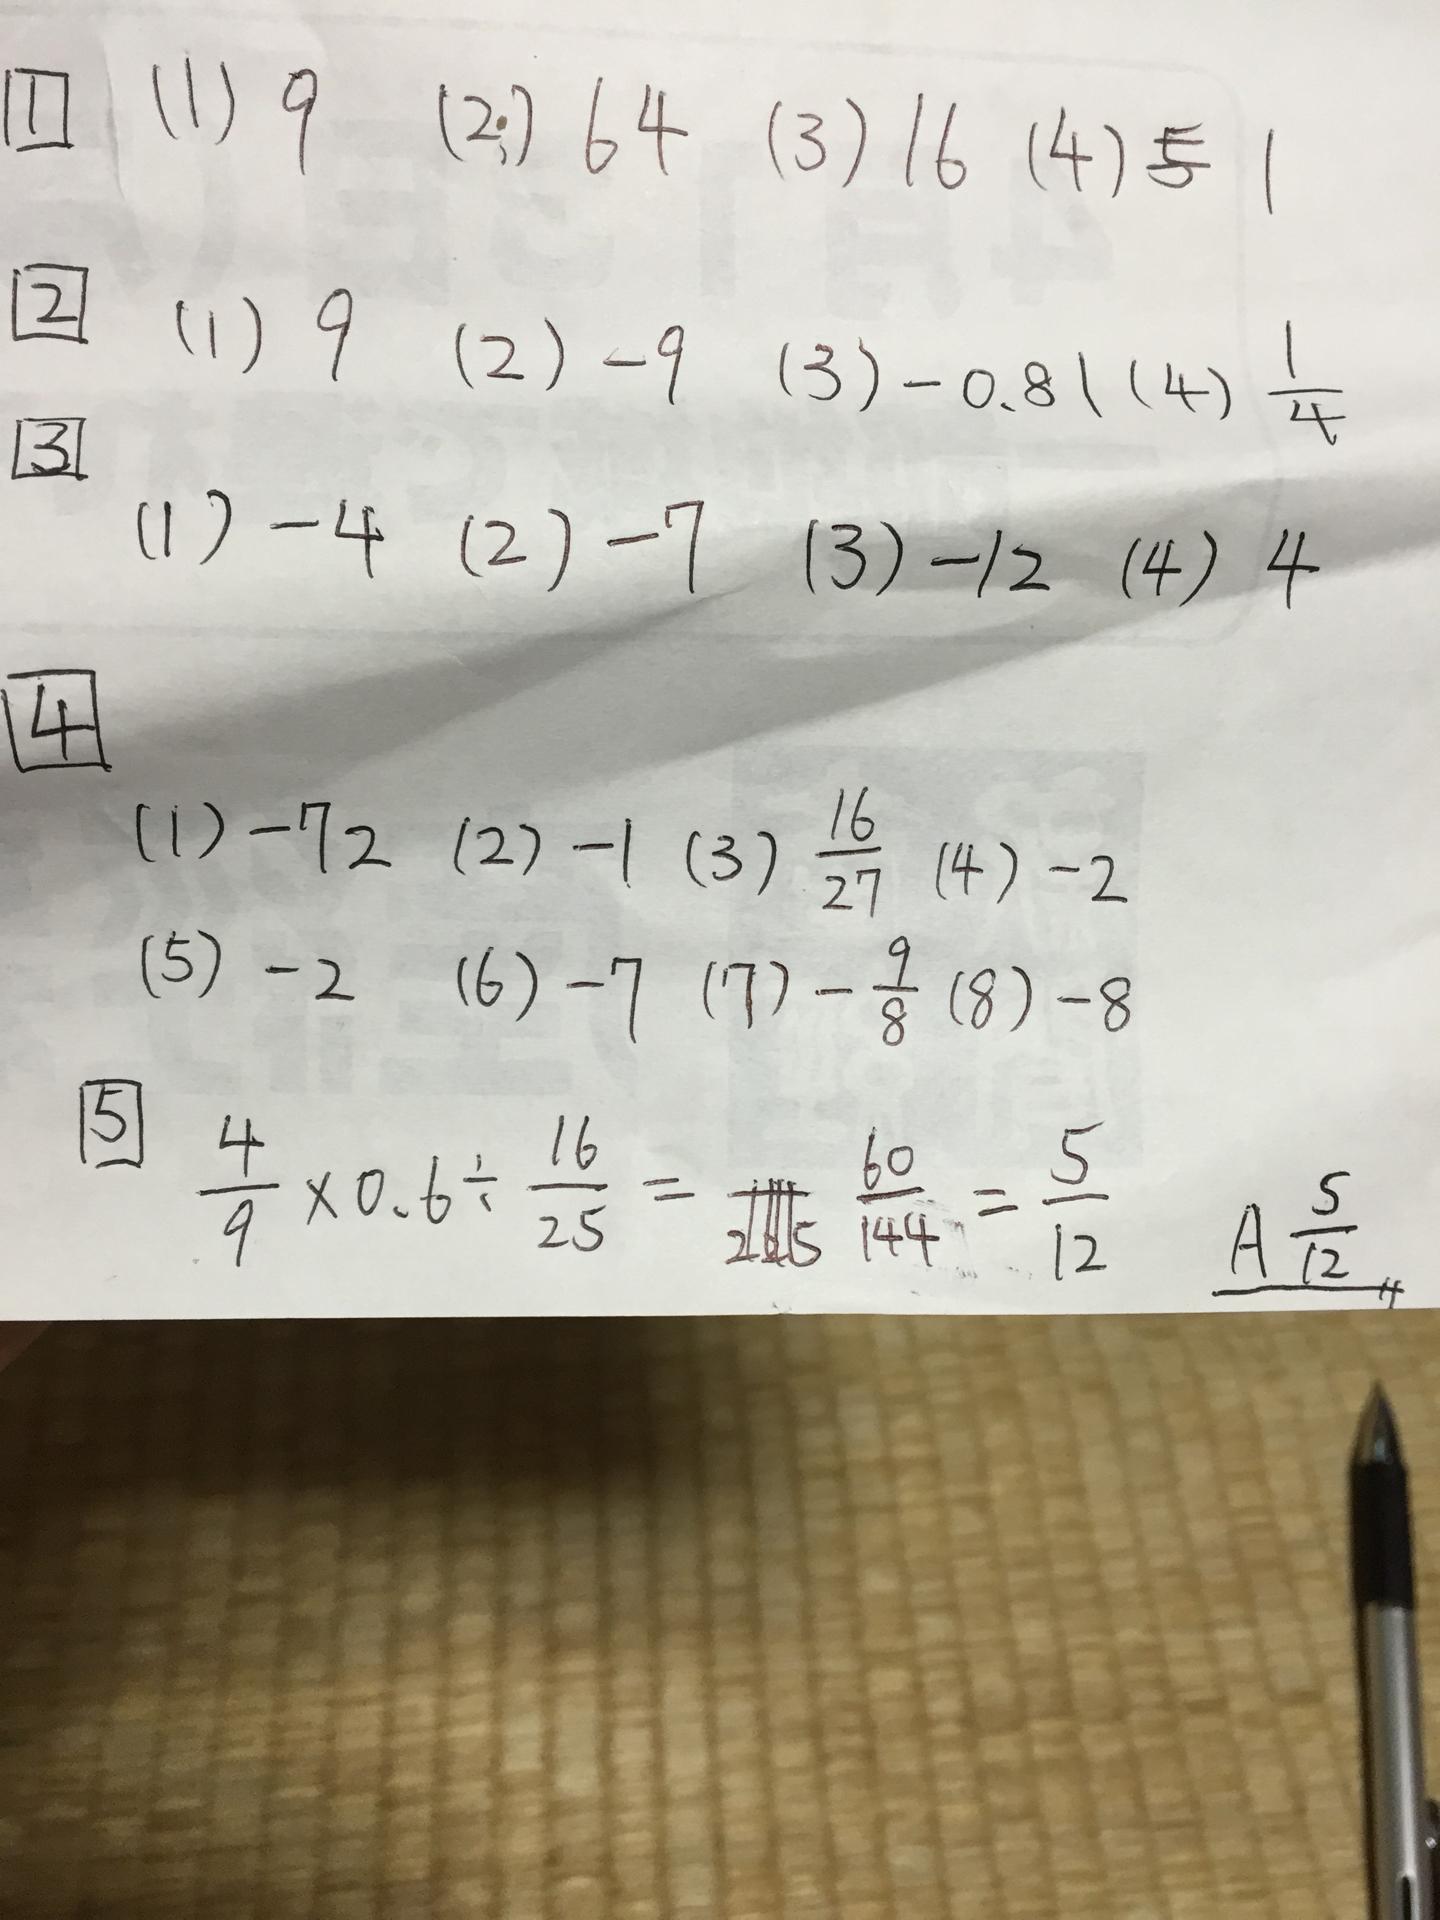 1 (1) 9 (2) 64 (3) 16 (4) 5 1
2 (1) 9 (2) -9 (3) -0.81 (4) 1/4
3
(1) -4 (2) -7 (3) -12 (4) 4
4
(1) -72 (2) -1 (3) 16/27 (4) -2
(5) -2 (6) -7 (7) -9/8 (8) -8
5 4/9 × 0.6 ÷ 16/25 = 60/144 = 5/12 A 5/12